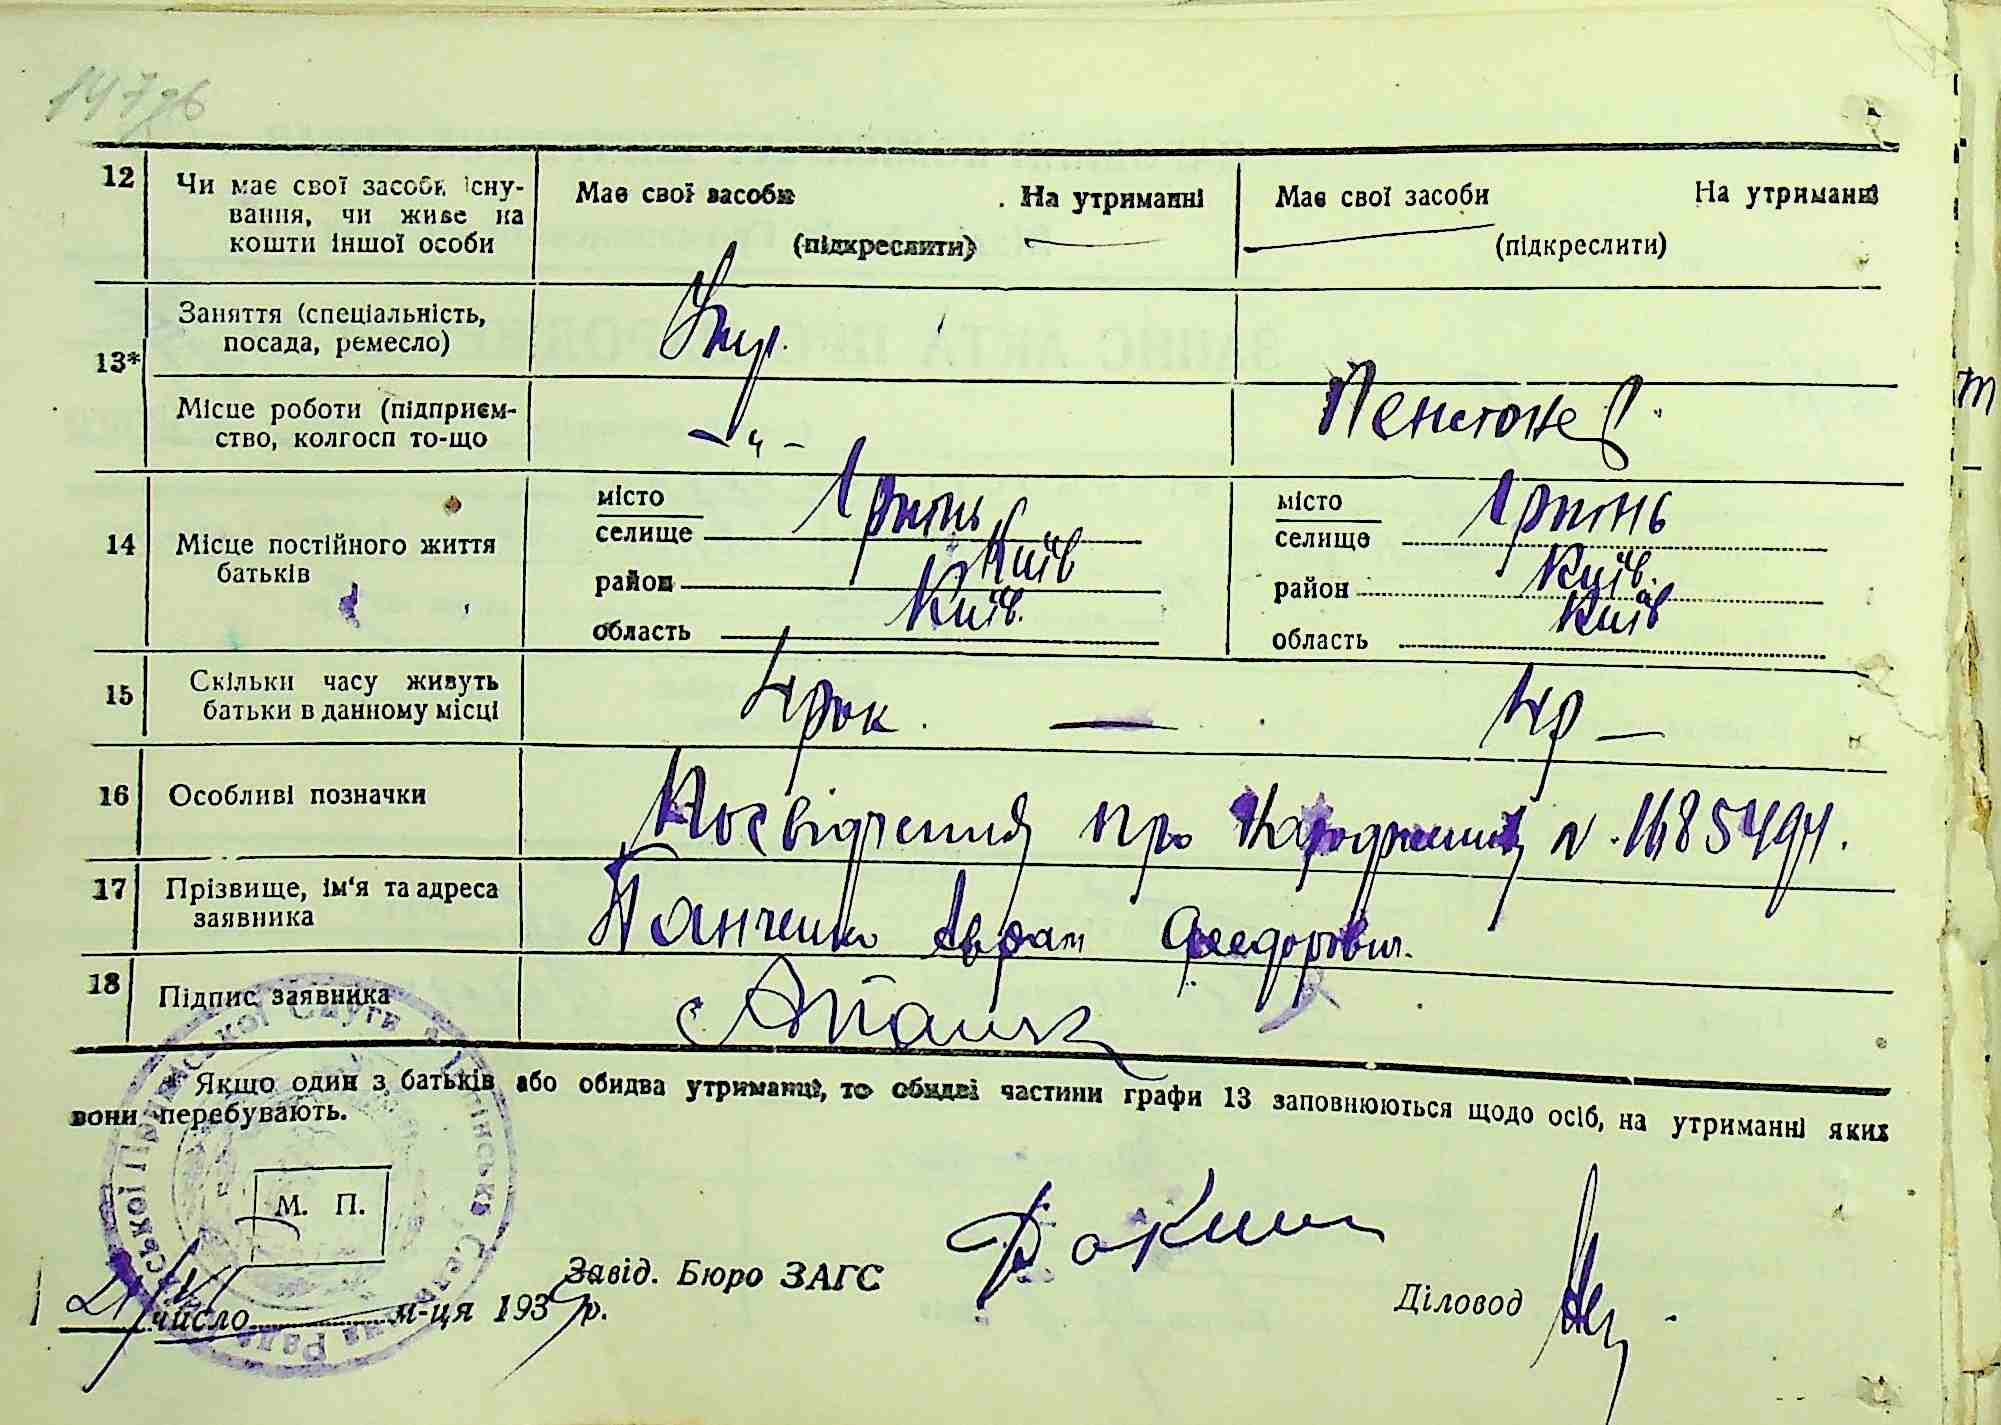 147зв
12 Чи має свої засоби існу-
вання, чи живе на
кошти іншої особи
Має свої засоби На утриманні
(підкреслити)
Має свої засоби На утриманні
(підкреслити)
13*
Заняття (спеціальність,
посада, ремесло)
Місце роботи (підприєм-
ство, колгосп то-що
- " -
Пенсіонер.
14 Місце постійного життя
батьків
місто
селище Ірпінь
район Київ
область Київ.
місто
селище Ірпінь
район Київ.
область Київ
15 Скільки часу живуть
батьки в данному місці
4 рок. —
4 р —
16 Особливі позначки
Посвідчення про народження N.
17 Прізвище, ім'я та адреса
заявника
Панченко Аврам Феодорович.
18 Підпис заявника
* Якщо один з батьків або обидва утриманці, то обидві частини графи 13 заповнюються щодо осіб, на утриманні яких
вони перебувають.
М. П.
Завід. Бюро ЗАГС
Діловод
21/VI число м-ця 1939 р.